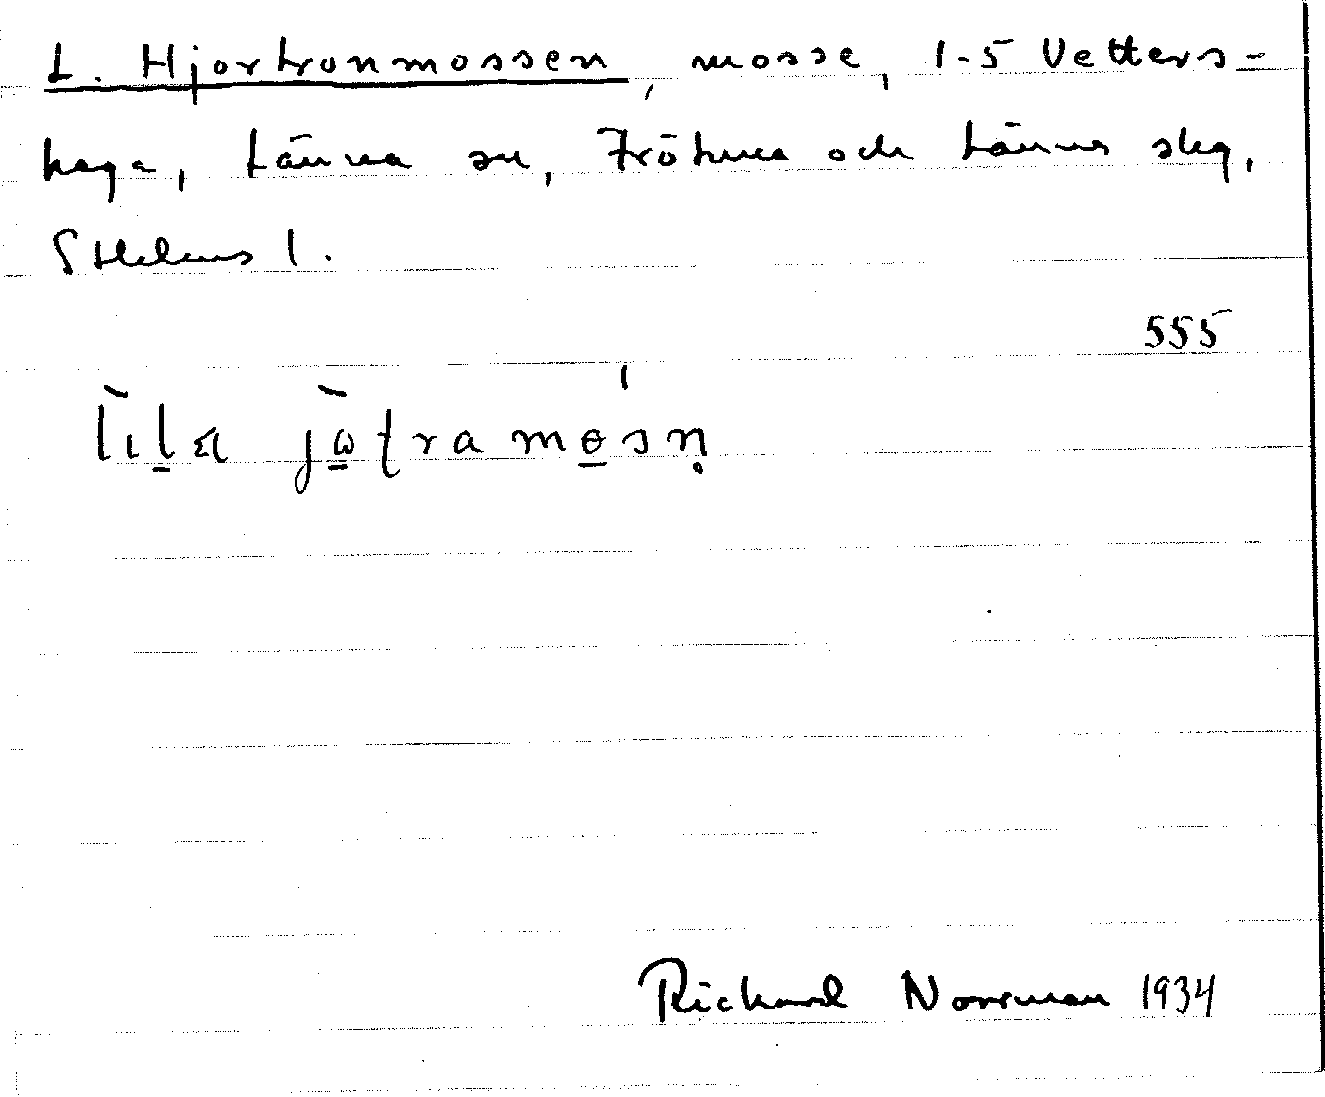 L. Hjortronmossen, mosse, 1-5 Vetters-
haga, Länna sn, Frötuna och Länna slg,
Sthlms l.
555
Richard Norrman 1934